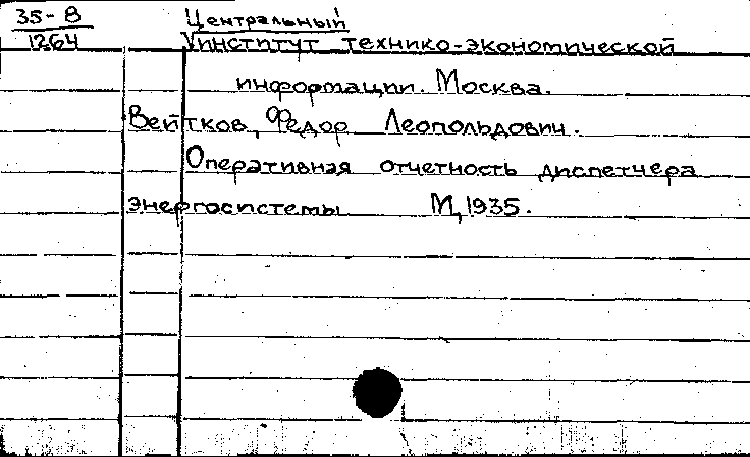 35-8
1264
Центральный
институт технико-экономической
информации. Москва.
Вейтков, Федор Леопольдович.
Оперативная отчетность диспетчера
энергосистемы М, 1935.